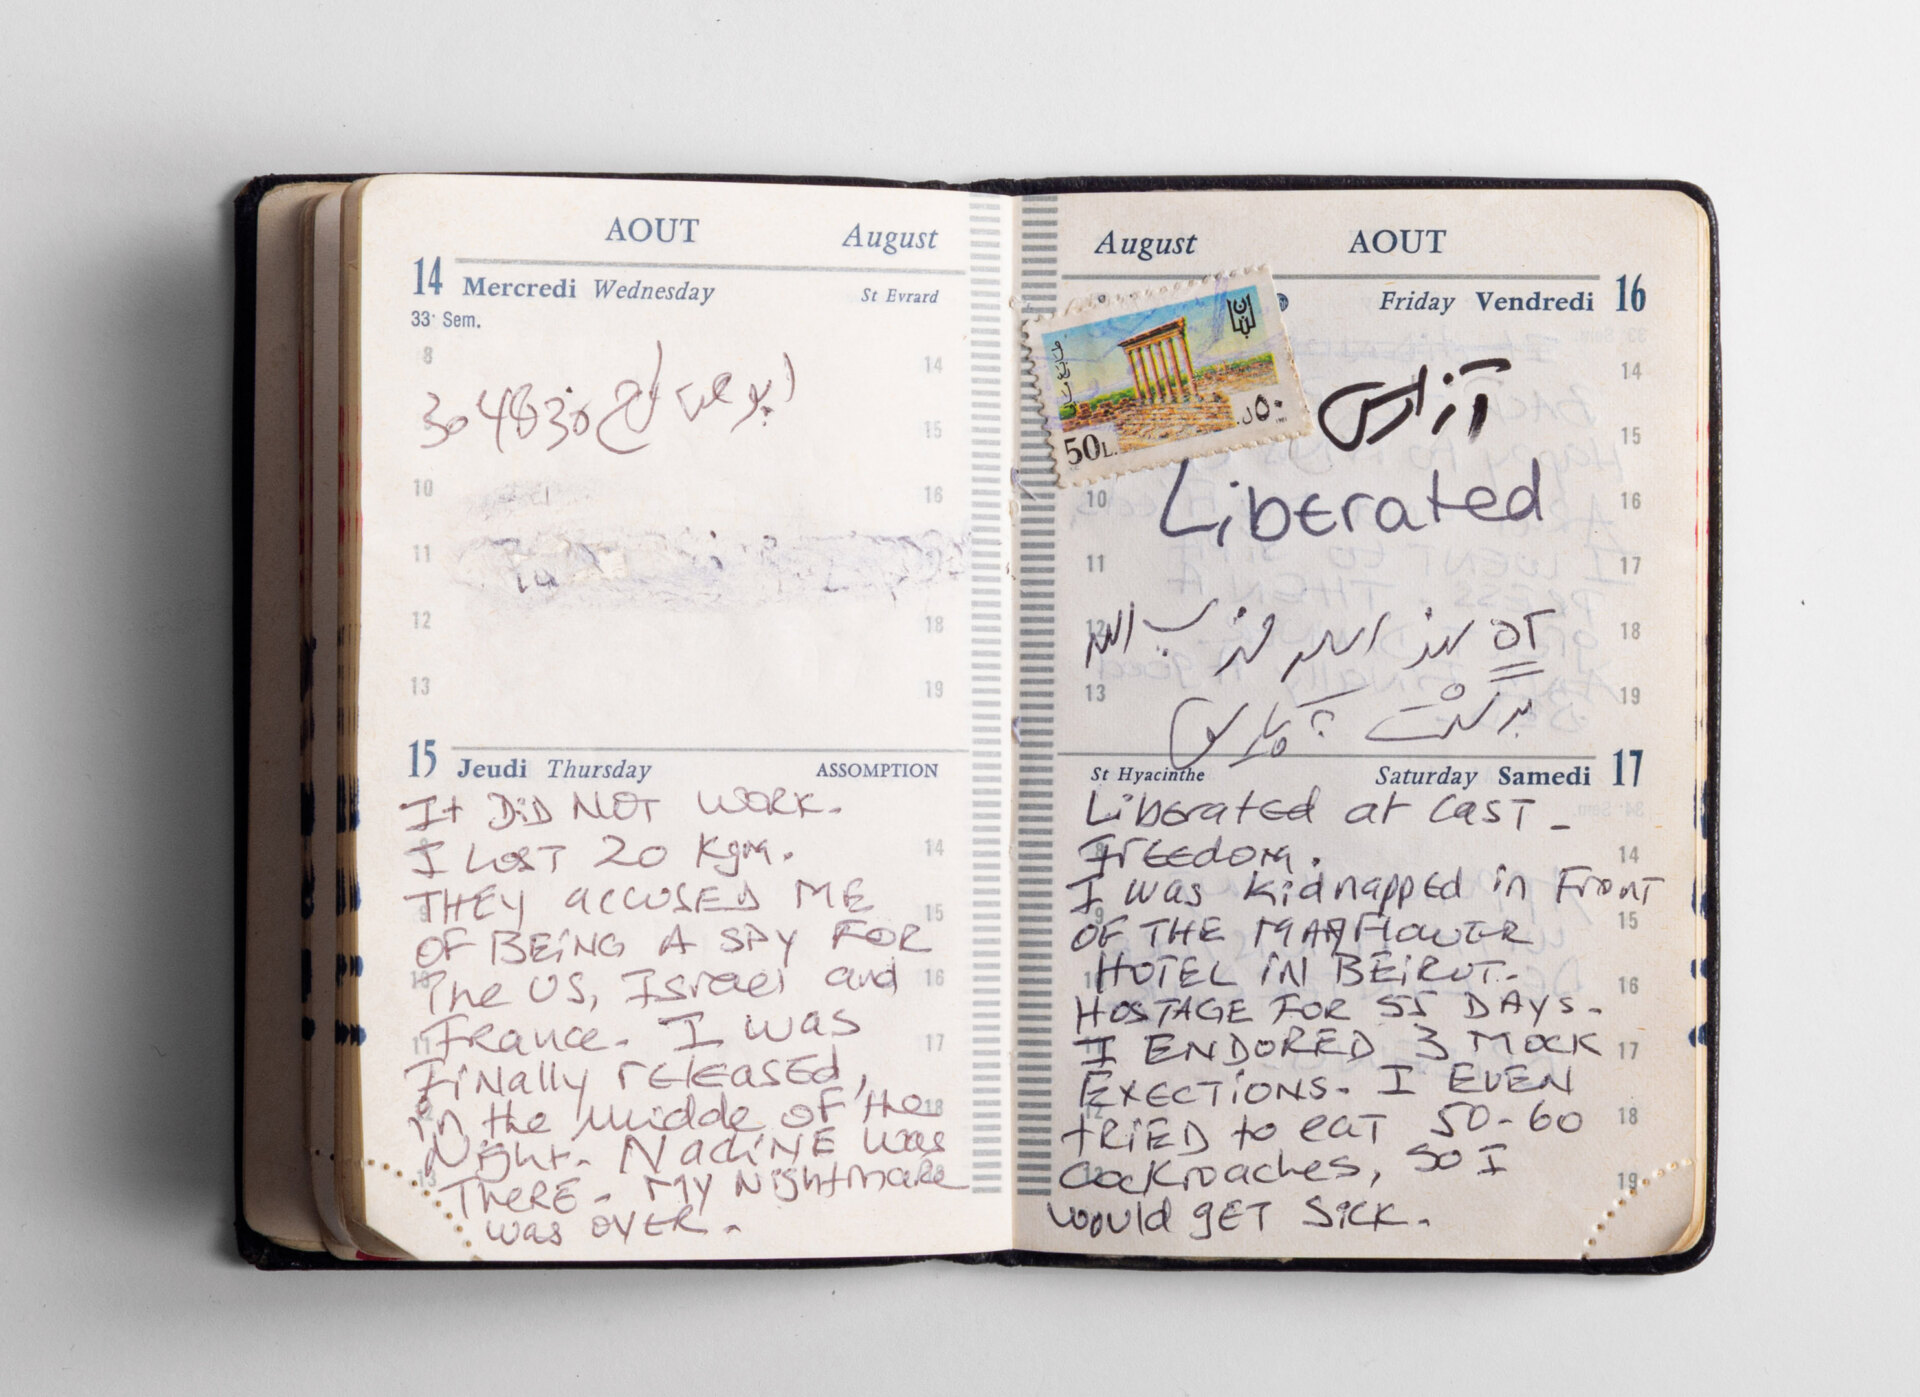 AOUT August
14 Mercredi Wednesday St Evrard
33e Sem.
8
14
304830
9
15
10
16
11
17
12
18
13
19
15 Jeudi Thursday ASSOMPTION
It DiD NOT WORK.
I LOST 20 Kgm.
THEY accuSED ME
OF BEiNG A SPY FOR
The US, Israel and
France. I was
Finally rELEASEd,
in the middle of the
Night. NadiNE was
THERE. MY Nightmare
was OVER.
August AOUT
Friday Vendredi 16
لبنان
50L.
٥٠ ل.
آزادی
Liberated
14
15
10
16
11
17
آزاد
12
18
13
19
برگشت به پاریس
St Hyacinthe Saturday Samedi 17
Liberated at LAST.
FrEEdom.
I was kidnappEd in FroNT
OF THE MAYFLOWER
HOTEL iN BEiRUT.
HOSTAGE FOR 55 DAYS.
I ENDORED 3 MOCK
EXECTiONS. I EVEN
tRiED to eaT 50-60
Cockroaches, SO I
would gET SiCK.